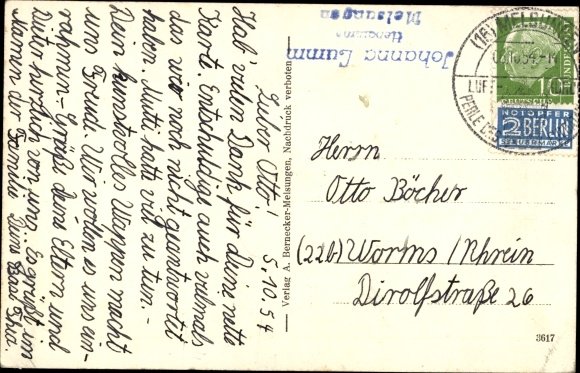 Lieber Otto! 5.10.54
Hab vielen Dank für Deine nette
Karte. Entschuldige auch vielmals
das wir noch nicht geantwortet
haben. Mutti hatte viel zu tun. -
Dein kunstvolles Wappen macht
uns Freude. Wir wollen es uns ein-
rahmen - Grüße deine Eltern und
Dich herzlich von uns. Es grüßt im
Namen der Familie Deine
Johanna Lumm
Melsungen
Verlag A. Bernecker-Melsungen, Nachdruck verboten
(16) MELSUNGEN
10.54.-1
LUFT
PERLE D
10
DEUTSCHE
BUNDES
NOTOPFER
2 BERLIN
STEUERMARKE
Herrn
Otto Böcher
(22b) Worms / Rhein
Dirolfstraße 26
3617